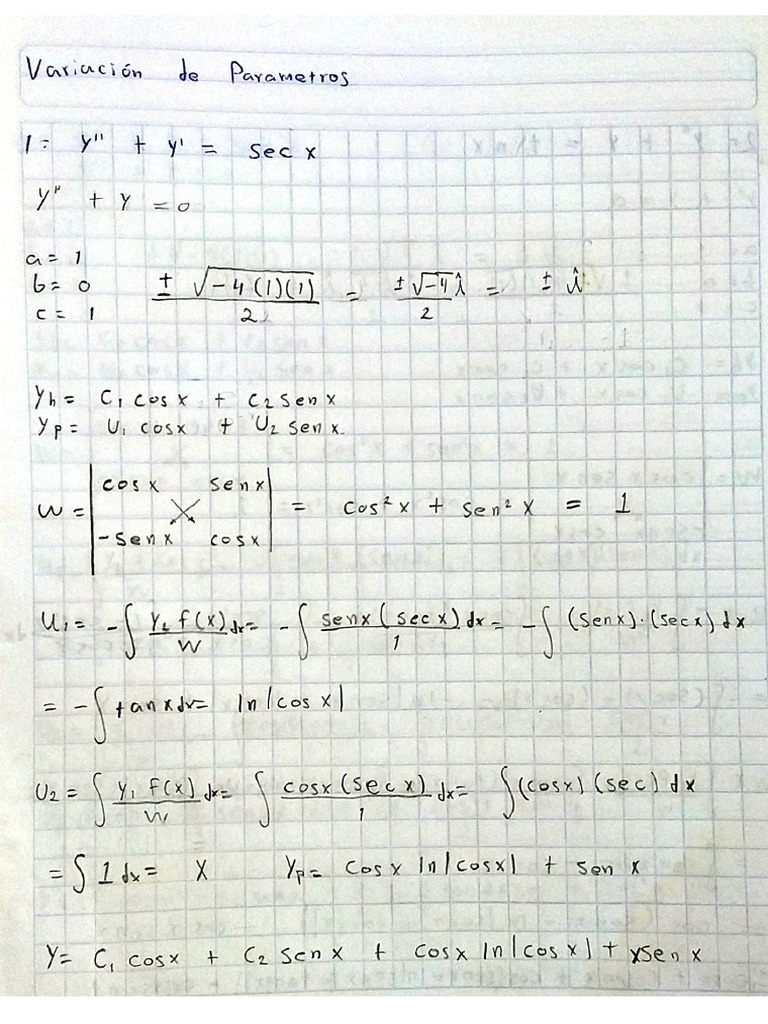 Variación de Parametros
1= y'' + y' = sec x
y'' + y = 0
a = 1
b = 0 ± √-4(1)(1) / 2 = ± √-4 i / 2 = ± i
c = 1
Yh = C1 cos x + C2 sen x
Yp = U1 cosx + U2 sen x.
W = | cos x sen x | = cos² x + sen² x = 1
| -sen x cos x |
U1 = -∫ Y2 f(x) / W dx = -∫ senx (sec x) / 1 dx = -∫ (senx)·(sec x) dx
= -∫ tan x dx = ln |cos x|
U2 = ∫ Y1 f(x) / W dx = ∫ cosx (sec x) / 1 dx = ∫ (cosx) (sec) dx
= ∫ 1 dx = X Yp = cos x ln |cosx| + sen x
Y = C1 cos x + C2 sen x + cosx ln |cos x| + x sen x